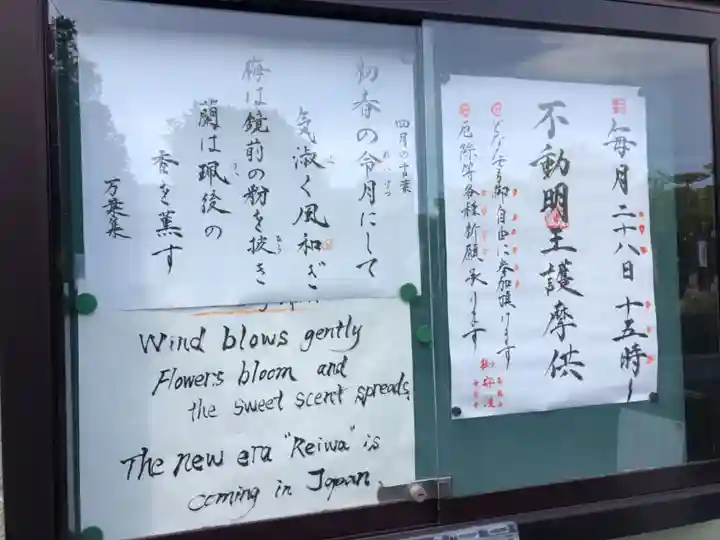 四月の言葉
初春の令月にして
れいげつ
気淑く風和ぎ
よ
梅は鏡前の粉を披き
蘭は珮後の
香を薫す
万葉集
Wind blows gently
Flowers bloom and
the sweet scent spreads.
The new era "Reiwa" is
coming in Japan.
毎月二十八日十五時〜
不動明王護摩供
どなたでも御自由に参加頂けます
厄除等各種祈願承ります